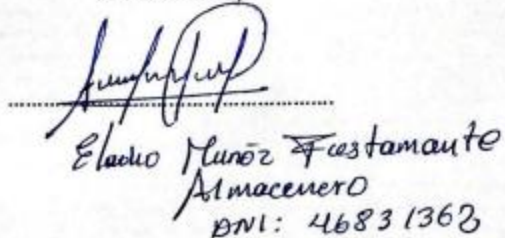 Eladio Munõz Fustamante
Almacenero
DNI: 46831362